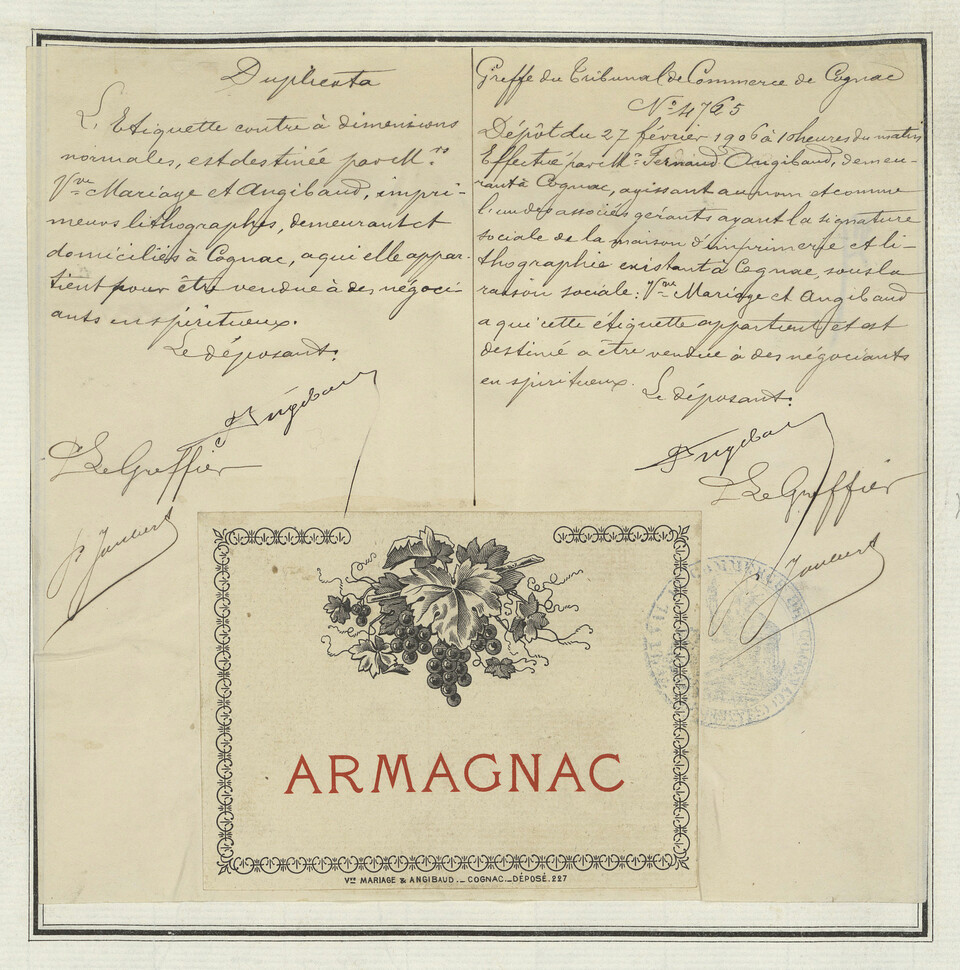 Duplicata
L'Etiquette contre à dimensions
normales, est destinée par M.rs
Vve Mariage et Angibaud, impri-
meurs lithographes, demeurant et
domiciliés à Cognac, a qui elle appar-
tient pour être vendue à des négoci-
ants en spiritueux.
Le déposant:
Angibaud
P. Le Greffier
Greffe du Tribunal de Commerce de Cognac
No 4765
Dépôt du 27 février 1906 à 10 heures du matin
Effectué par M.r Fernand Angibaud, demeu-
rant à Cognac, agissant au nom et comme
l'un des associés gérants ayant la signature
sociale de la maison d'imprimerie et li-
thographie existant à Cognac, sous la
raison sociale: Vve Mariage et Angibaud
a qui cette étiquette appartient et est
destiné a être vendue à des négociants
en spiritueux.
Le déposant:
Angibaud
P. Le Greffier
ARMAGNAC
Vve MARIAGE & ANGIBAUD._ COGNAC._DÉPOSÉ.227